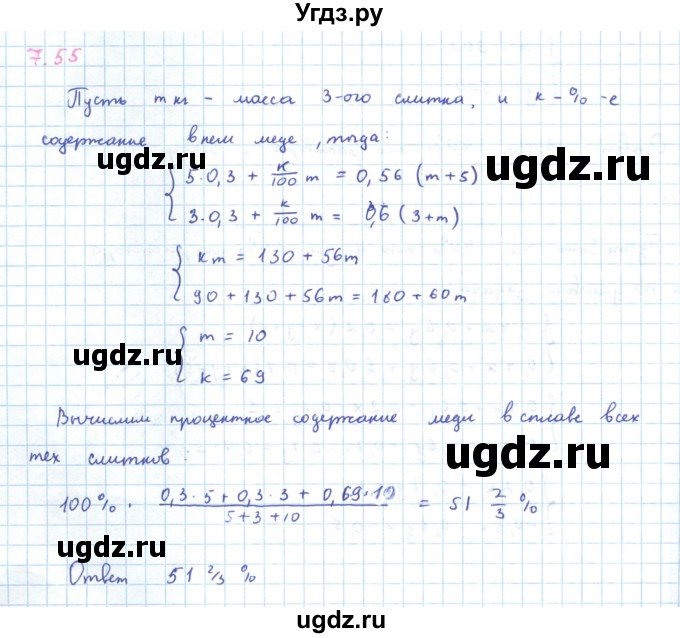 Угдз.ру
7.55
Пусть m кг - масса 3-ого слитка, и k - % -е
содержание в нем меди, тогда:
ugdz.ru
ugdz.ru
5·0,3 + k/100 m = 0,56 (m+5)
3·0,3 + k/100 m = 0,6 (3+m)
km = 130 + 56m
90 + 130 + 56m = 180 + 60m
ugdz.ru
m = 10
k = 69
Вычислим процентное содержание меди в сплаве всех
тех слитков:
ugdz.ru
100% · (0,3·5 + 0,3·3 + 0,69·10)/(5+3+10) = 51 2/3 %
ugdz.ru
Ответ 51 2/3 %
ugdz.ru